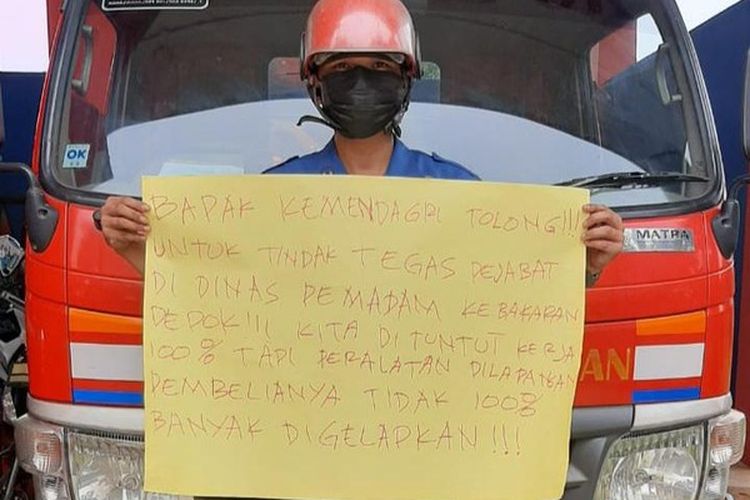 OK
MATRA
BAPAK KEMENDAGRI TOLONG!!!
UNTUK TINDAK TEGAS PEJABAT
DI DINAS PEMADAM KEBAKARAN
DEPOK!!! KITA DITUNTUT KERJA
100% TAPI PERALATAN DILAPANGAN
PEMBELIANYA TIDAK 100%
BANYAK DIGELAPKAN!!!
AN